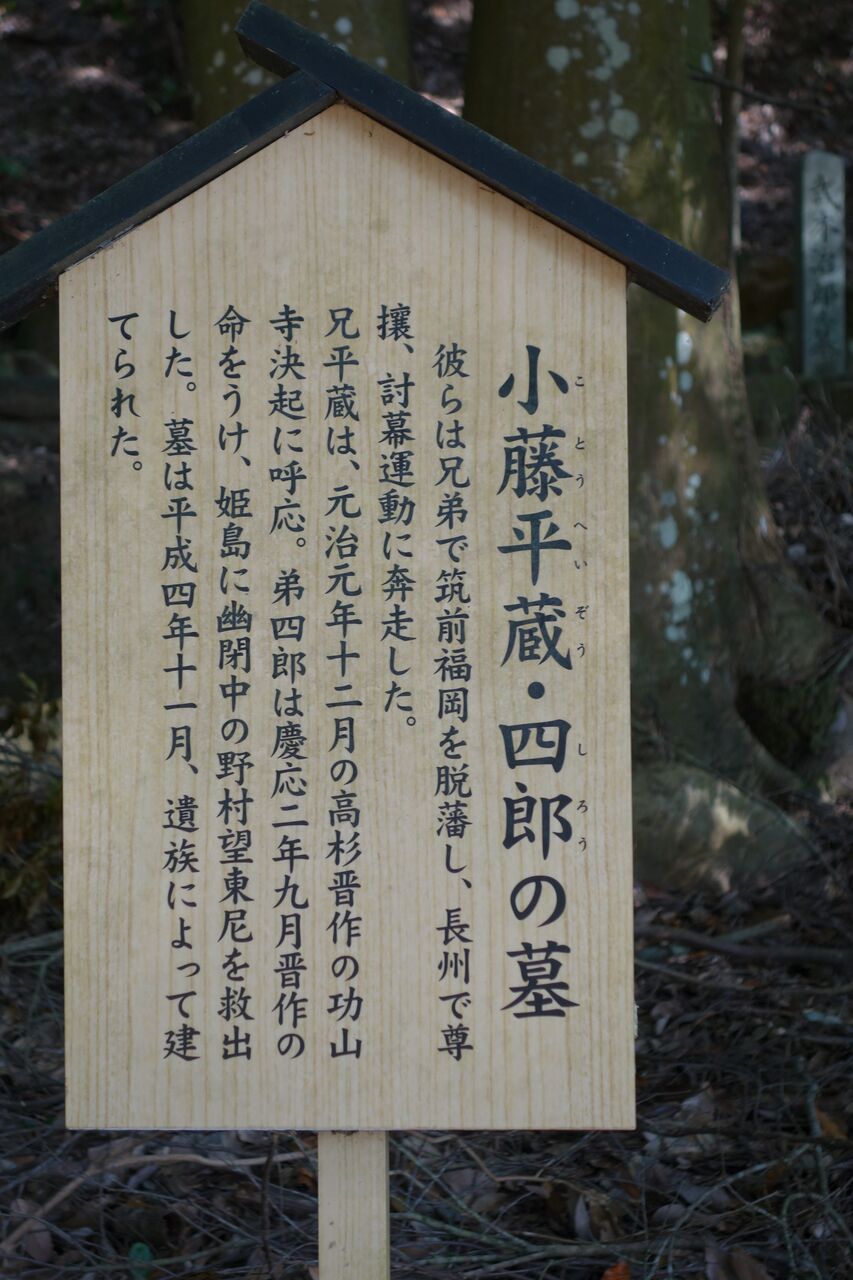 小藤平蔵・四郎の墓
ことうへいぞう しろう
彼らは兄弟で筑前福岡を脱藩し、長州で尊
攘、討幕運動に奔走した。
兄平蔵は、元治元年十二月の高杉晋作の功山
寺決起に呼応。弟四郎は慶応二年九月晋作の
命をうけ、姫島に幽閉中の野村望東尼を救出
した。墓は平成四年十一月、遺族によって建
てられた。